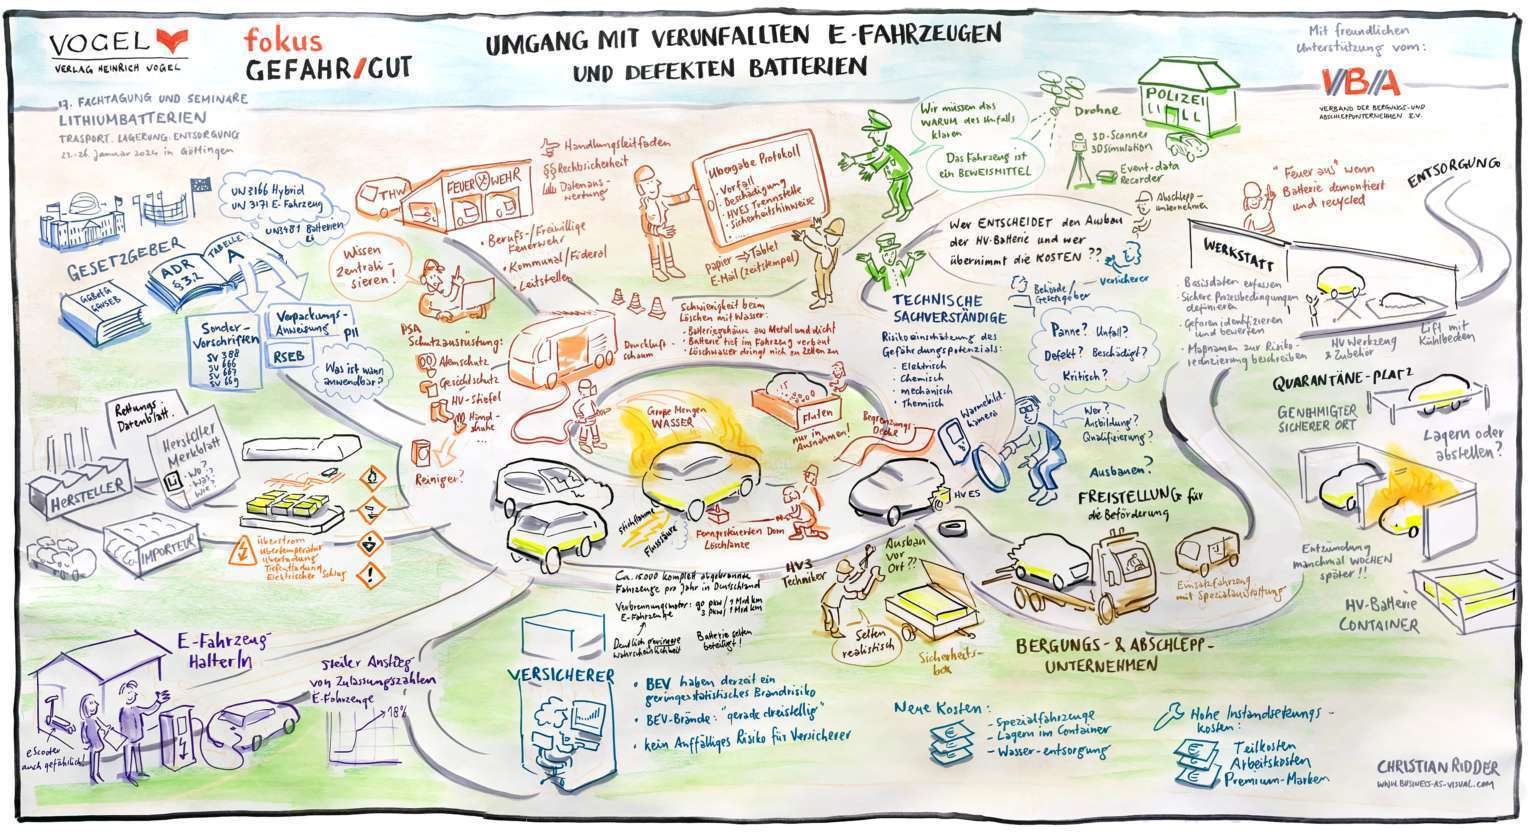 VOGEL
VERLAG HEINRICH VOGEL
fokus
GEFAHR/GUT
UMGANG MIT VERUNFALLTEN E-FAHRZEUGEN
UND DEFEKTEN BATTERIEN
Mit freundlichen
Unterstützung vom:
VBA
VERBAND DER BERGUNGS- UND
ABSCHLEPPUNTERNEHMEN E.V.
17. FACHTAGUNG UND SEMINARE
LITHIUMBATTERIEN
TRASPORT. LAGERUNG. ENTSORGUNG
22.-26. Januar 2024 in Göttingen
GESETZGEBER
UN 3166 Hybrid
UN 3171 E-Fahrzeug
UN3481 Batterien
GGBefG
GGVSEB
ADR
§ 3.2
TABELLE
A
Sonder-
Vorschriften
SV 388
SV 666
SV 667
SV 669
Verpackungs-
Anweisung
P11
RSEB
Was ist wann
anwendbar?
THW
FEUERWEHR
Handlungsleitfaden
§§ Rechtssicherheit
Datenaus-
wertung
• Berufs-/Freiwillige
Feuerwehr
• Kommunal/Föderal
• Leitstellen
Wissen
Zentrali-
sieren!
PSA
Schutzausrüstung:
Atemschutz
Gesichtschutz
HV-Stiefel
Hand-
schuhe
...
Reiniger?
Übergabe Protokoll
- Vorfall
- Beschädigung
- HVES Trennstelle
- Sicherheitshinweise
papier ⇒ Tablet
E-Mail (zeitstempel)
Druckluft-
schaum
Schwierigkeit beim
Löschen mit Wasser:
- Batteriegehäuse aus Metall und dicht
- Batterie tief im Fahrzeug verbaut
- Löschwasser dringt nich zu Zellen zu
Große Mengen
WASSER
Fluten
nur in
Ausnahmen!
Begrenzungs
Decke
Stichflamme
Flusssäure
Ferngesteuerten Dorn
Löschlanze
Wir müssen das
WARUM des Unfalls
klären
Das Fahrzeug ist
ein BEWEISMITTEL
Drohne
POLIZEI
3D-Scanner
3D Simulation
Event-data
Recorder
Abschlepp-
unternehmen
Wer ENTSCHEIDET den Ausbau
der HV-Batterie und wer
übernimmt die KOSTEN ??
Versicherer
Behörde/
Gesetzgeber
TECHNISCHE
SACHVERSTÄNDIGE
Risikoeinschätzung des
Gefährdungspotenzials:
- Elektrisch
- Chemisch
- mechanisch
- Thermisch
Panne? Unfall?
Defekt? Beschädigt?
Kritisch?
Wärmebild-
kamera
Wer?
Ausbildung?
Qualifizierung?
Ausbauen?
HVES
FREISTELLUNG für
die Beförderung
"Feuer aus" wenn
Batterie demontiert
und recycled
ENTSORGUNG
WERKSTATT
- Basisdaten erfassen
- Sichere Prozessbedingungen
definieren
- Gefahren identifizieren
und bewerten
- Maßnahmen zur Risiko-
reduzierung beschreiben
HV Werkzeug
& Zubehör
Lift mit
Kühlbecken
QUARANTÄNE-PLATZ
GENEHMIGTER
SICHERER ORT
Lagern oder
abstellen?
Entzündung
manchmal WOCHEN
später!!
HV-Batterie
CONTAINER
Rettungs-
Datenblatt
Hersteller
Merkblatt
- Wo?
- Was?
- Wie?
HERSTELLER
IMPORTEUR
Überstrom
Übertemperatur
Überladung
Tiefentladung
Elektrischer Schlag
E-Fahrzeug
HalterIn
eScooter
auch gefährlich!
steiler Anstieg
von Zulassungszahlen
E-Fahrzeuge
18%
Ca. 15.000 komplett abgebrannte
Fahrzeuge pro Jahr in Deutschland
Verbrennungsmotor: 90 pkw/1 Mrd km
E-Fahrzeuge 3 pkw/1 Mrd km
Deutlich geringere
Wahrscheinlichkeit
Batterie selten
beteiligt!
VERSICHERER
• BEV haben derzeit ein
geringes statistisches Brandrisiko
• BEV-Brände: "gerade dreistellig"
• kein Auffälliges Risiko für Versicherer
HV3
Techniker
Ausbau
vor
Ort??
Selten
realistisch
Sicherheits-
box
BERGUNGS- & ABSCHLEPP-
UNTERNEHMEN
Einsatzfahrzeug
mit Spezialausstattung
Neue Kosten:
- Spezialfahrzeuge
- Lagern im Container
- Wasser-entsorgung
Hohe Instandsetzungs-
kosten:
Teilkosten
Arbeitskosten
Premium-Marken
CHRISTIAN RIDDER
WWW.BUSINESS-AS-VISUAL.COM